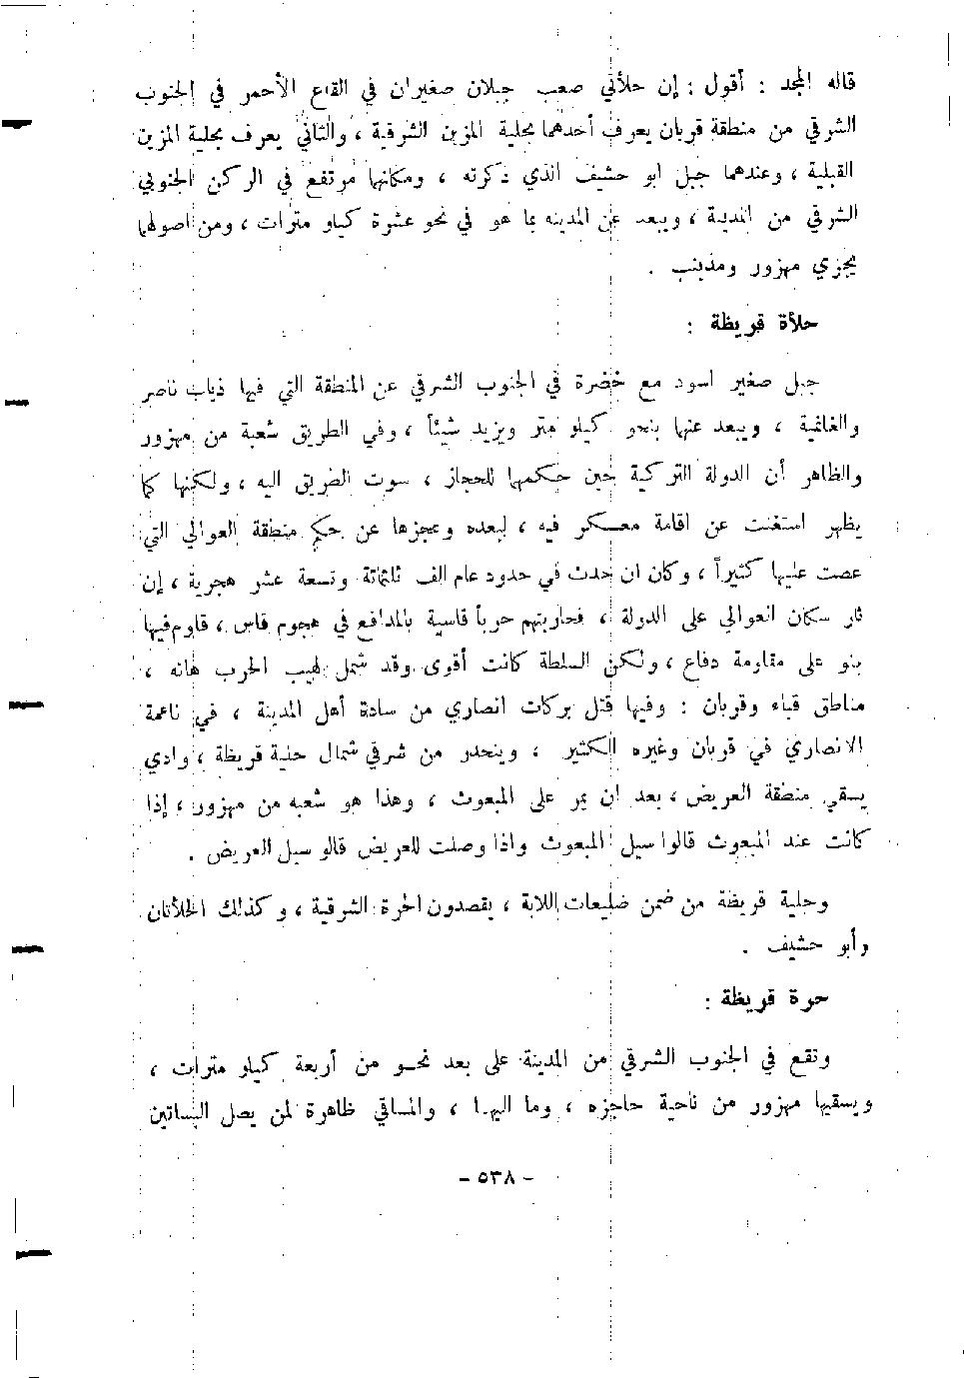 قاله المجد : أقول : إن حلأتي صعب جبلان صغيران في القاع الأحمر في الجنوب
الشرقي من منطقة قربان يعرف أحدهما بحلية المزين الشرقية ، والثاني يعرف بحلية المزين
القبلية ، وعندهما جبل ابو حشيف الذي ذكرته ، ومكانها مرتفع في الركن الجنوبي
الشرقي من المدينة ، ويبعد عن المدينه بما هو في نحو عشرة كيلو مترات ، ومن اصولهما
يجزي مهزور ومذينب .
حلأة قريظة :
جبل صغير اسود مع خضرة في الجنوب الشرقي عن المنطقة التي فيها ذياب ناصر
ويبعد عنها بنحو كيلو متر ويزيد شيئاً ، وفي الطريق شعبة من مهزور
والظاهر أن الدولة التركية حين حكمها للحجاز ، سوت الطريق اليه ، ولكنها كما
يظهر استغنت عن اقامة معسكر فيه ، لبعده وعجزها عن حكم منطقة العوالي التي
عصت عليها كثيراً ، وكان ان حدث في حدود عام الف ثلثمائة وتسعة عشر هجرية ، إن
ثار سكان العوالي على الدولة ، فحاربتهم حرباً قاسية بالمدافع في هجوم قاس ، قاوم فيها
بنو على مقاومة دفاع ، ولكن السلطة كانت أقوى وقد شمل لهيب الحرب هاته ،
مناطق قباء وقربان : وفيها قتل بركات انصاري من سادة أهل المدينة ، في ناعمة
الانصاري في قربان وغيره الكثير ، وينحدر من شرقي شمال حلية قريظة ، وادي
يسقي منطقة العريض ، بعد ان يمر على المبعوث ، وهذا هو شعبه من مهزور ، إذا
كانت عند المبعوث قالوا سيل المبعوث واذا وصلت للعريض قالو سيل العريض .
وحلية قريظة من ضمن ضليعات اللابة ، يقصدون الحرة الشرقية ، وكذلك الحلأتان
وأبو حشيف .
حرة قريظة :
وتقع في الجنوب الشرقي من المدينة على بعد نحو من أربعة كيلو مترات ،
ويسقيها مهزور من ناحية حاجزه ، وما اليها ، والمساقي ظاهرة لمن يصل البساتين
- ٥٣٨ -